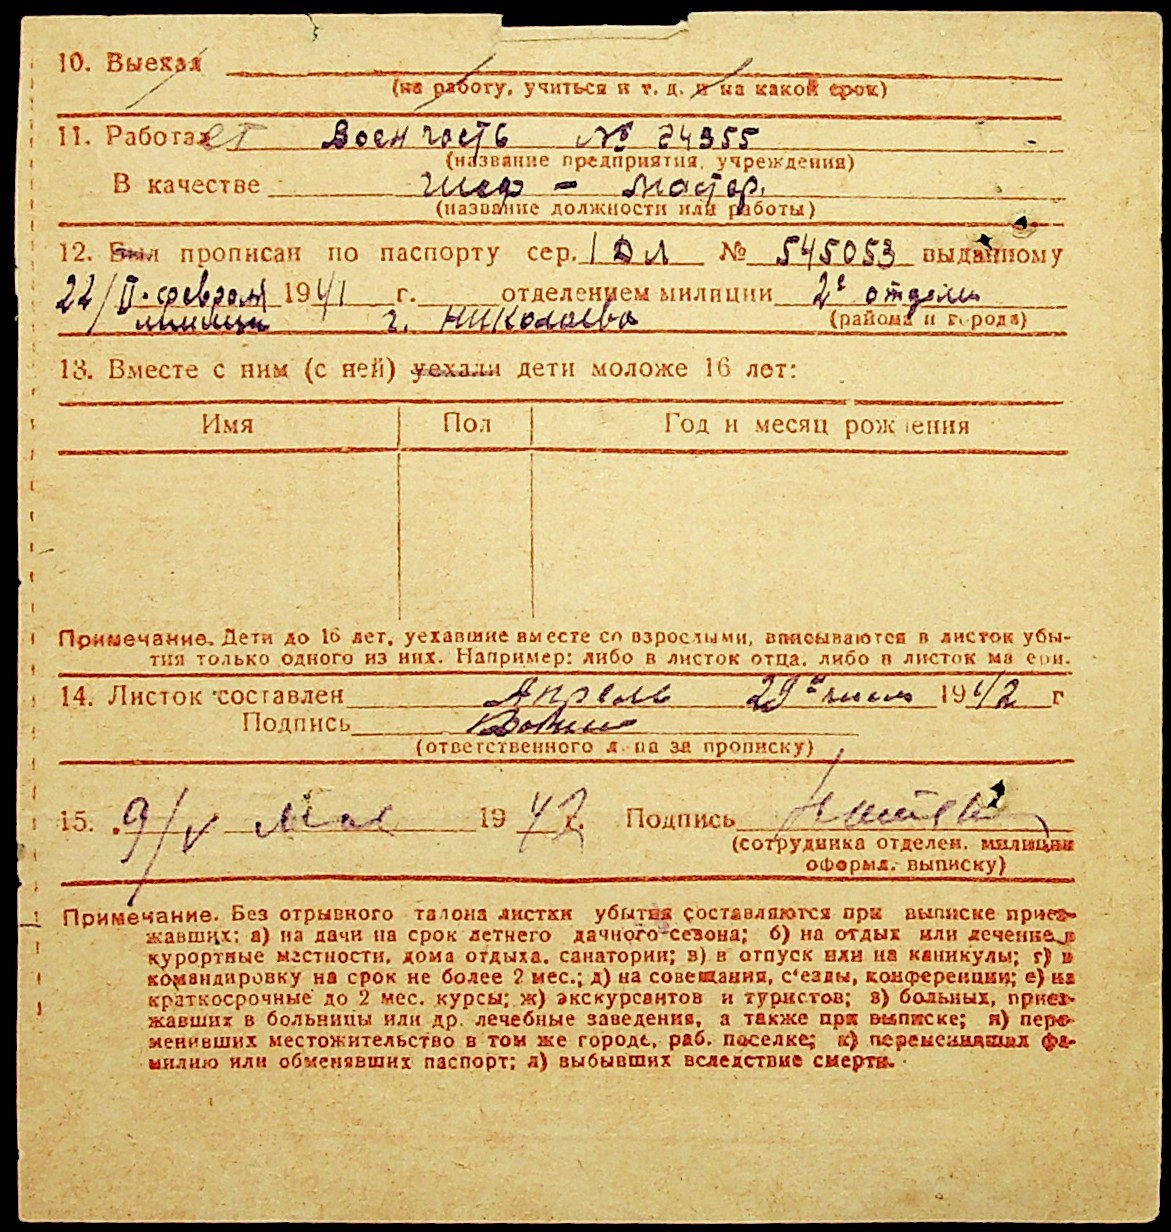 10. Выехал
(на работу, учиться и т. д. и на какой срок)
11. Работает Воен часть № 24955
(название предприятия, учреждения)
В качестве Шеф - мастер.
(название должности или работы)
12. Был прописан по паспорту сер. I ДЛ № 545053 выданному
22/II-февраля 1941 г. отделением милиции 2е отдел
милиции г. Николаева (района и города)
13. Вместе с ним (с ней) уехали дети моложе 16 лет:
Имя Пол Год и месяц рождения
Примечание. Дети до 16 лет, уехавшие вместе со взрослыми, вписываются в листок убы-
тия только одного из них. Например: либо в листок отца, либо в листок матери.
14. Листок составлен Апрель 29го числа 1942 г
Подпись
(ответственного лица за прописку)
15. 9/V Мая 1942 г. Подпись
(сотрудника отделен. милиции
оформл. выписку)
Примечание. Без отрывного талона листки убытия составляются при выписке приез-
жавших: а) на дачи на срок летнего дачного сезона; б) на отдых или лечение в
курортные местности, дома отдыха, санатории; в) в отпуск или на каникулы; г) в
командировку на срок не более 2 мес.; д) на совещания, с'езды, конференции; е) на
краткосрочные до 2 мес. курсы; ж) экскурсантов и туристов; з) больных, приез-
жавших в больницы или др. лечебные заведения, а также при выписке; и) пере-
менивших местожительство в том же городе, раб. поселке; к) переменивших фа-
милию или обменявших паспорт; л) выбывших вследствие смерти.